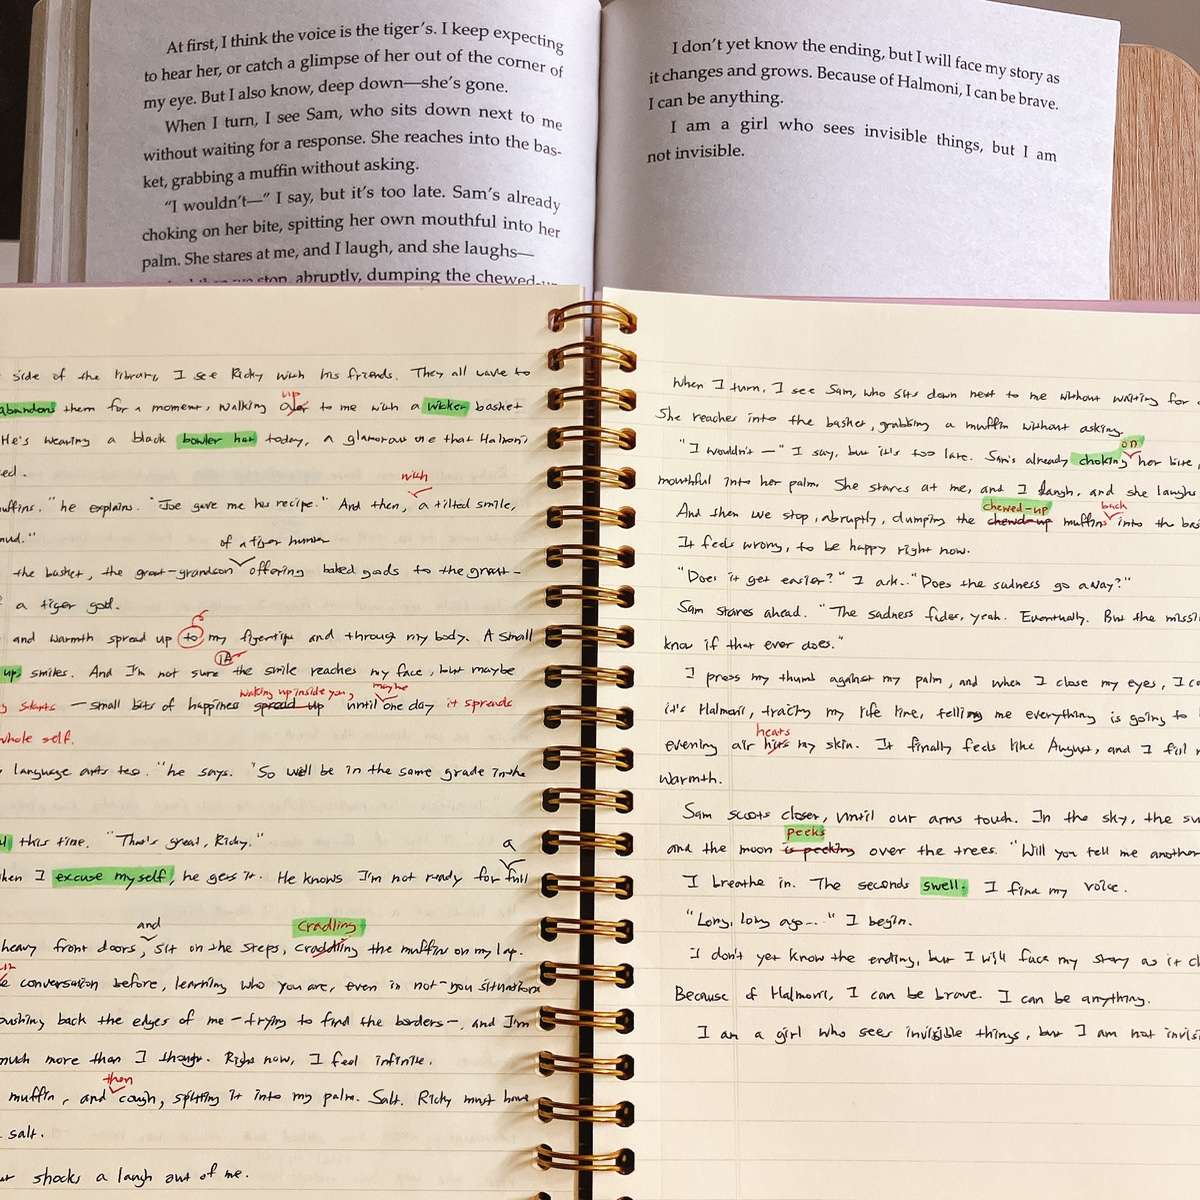 At first, I think the voice is the tiger's. I keep expecting
to hear her, or catch a glimpse of her out of the corner of
my eye. But I also know, deep down—she's gone.
When I turn, I see Sam, who sits down next to me
without waiting for a response. She reaches into the bas-
ket, grabbing a muffin without asking.
"I wouldn't—" I say, but it's too late. Sam's already
choking on her bite, spitting her own mouthful into her
palm. She stares at me, and I laugh, and she laughs—
stop, abruptly, dumping the chewed-up
I don't yet know the ending, but I will face my story as
it changes and grows. Because of Halmoni, I can be brave.
I can be anything.
I am a girl who sees invisible things, but I am
not invisible.
side of the library, I see Ricky with his friends. They all wave to
up
abandons them for a moment, walking to me with a wicker basket
He's wearing a black bowler hat today, a glamorous one that Halmoni
ed.
with
muffins," he explains. "Joe gave me his recipe." And then, a tilted smile,
mud."
of a tiger human
the basket, the great-grandson offering baked goods to the great-
a tiger god.
and warmth spread up to my fingertips and through my body. A small
if
up, smiles. And I'm not sure the smile reaches my face, but maybe
waking up inside you, maybe
starts — small bits of happiness spread up until one day it spreads
whole self.
language arts too." he says. "So we'll be in the same grade in the
this time. "That's great, Ricky."
a
when I excuse myself, he gets it. He knows I'm not ready for full
and cradling
heavy front doors, sit on the steps, craddling the muffin on my lap.
conversation before, learning who you are, even in not-you situations
pushing back the edges of me — trying to find the borders —, and I'm
much more than I thought. Right now, I feel infinite.
then
muffin, and cough, spitting it into my palm. Salt. Ricky must have
salt.
shocks a laugh out of me.
When I turn, I see Sam, who sits down next to me without waiting for
She reaches into the basket, grabbing a muffin without asking.
on
"I wouldn't —" I say, but it's too late. Sam's already choking her bite,
mouthful into her palm. She stares at me, and I laugh, and she laughs
chewed-up back
And then we stop, abruptly, dumping the chewd-up muffins into the bas
It feels wrong, to be happy right now.
"Does it get easier?" I ask.. "Does the sadness go away?"
Sam stares ahead. "The sadness fades, yeah. Eventually. But the missi
know if that ever does."
I press my thumb against my palm, and when I close my eyes, I
it's Halmoni, tracing my life line, telling me everything is going to
heats
evening air hits my skin. It finally feels like August, and I
warmth.
Sam scoots closer, until our arms touch. In the sky, the su
peeks
and the moon is peeking over the trees. "Will you tell me another
I breathe in. The seconds swell. I find my voice.
"Long, long ago..." I begin.
I don't yet know the ending, but I will face my story as it
Because of Halmoni, I can be brave. I can be anything.
I am a girl who sees invisible things, but I am not invisi